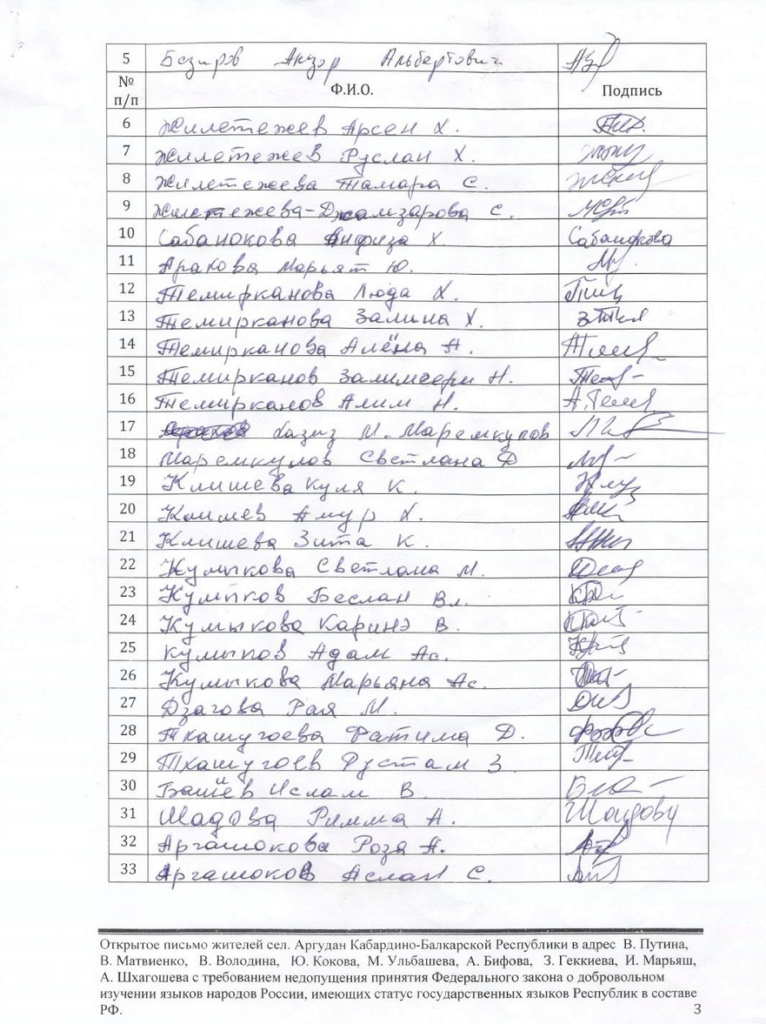 5 Безиров Анзор Альбертович
№ п/п Ф.И.О. Подпись
6 Жилетежев Арсен Х.
7 Жилетежев Руслан Х.
8 Жилетежева Тамара С.
9 Жилетежева-Джамзарова С.
10 Сабанокова Анфиза Х. Сабанокова
11 Аракова Марьят Ю.
12 Темирканова Люда Х.
13 Темирканова Залина Х.
14 Темирканова Алёна А.
15 Темирканов Залимгери Н.
16 Темирканов Алим Н.
17 Хазиз М. Маремкулов
18 Маремкулов Светлана Д
19 Клишева Куля К.
20 Клишев Амур Х.
21 Клишева Зита К.
22 Кумыкова Светлана М.
23 Кумыков Беслан Вл.
24 Кумыкова Каринэ В.
25 Кумыков Адам Ас.
26 Кумыкова Марьяна Ас.
27 Дзагова Рая М.
28 Тхашугоева Фатима Д.
29 Тхашугоев Рустам З
30 Ислам В.
31 Шадова Римма А. Шадову
32 Аргашокова Роза А.
33 Аргашоков Аслан С.
Открытое письмо жителей сел. Аргудан Кабардино-Балкарской Республики в адрес В. Путина,
В. Матвиенко, В. Володина, Ю. Кокова, М. Ульбашева, А. Бифова, З. Геккиева, И. Марьяш,
А. Шхагошева с требованием недопущения принятия Федерального закона о добровольном
изучении языков народов России, имеющих статус государственных языков Республик в составе
РФ. 3